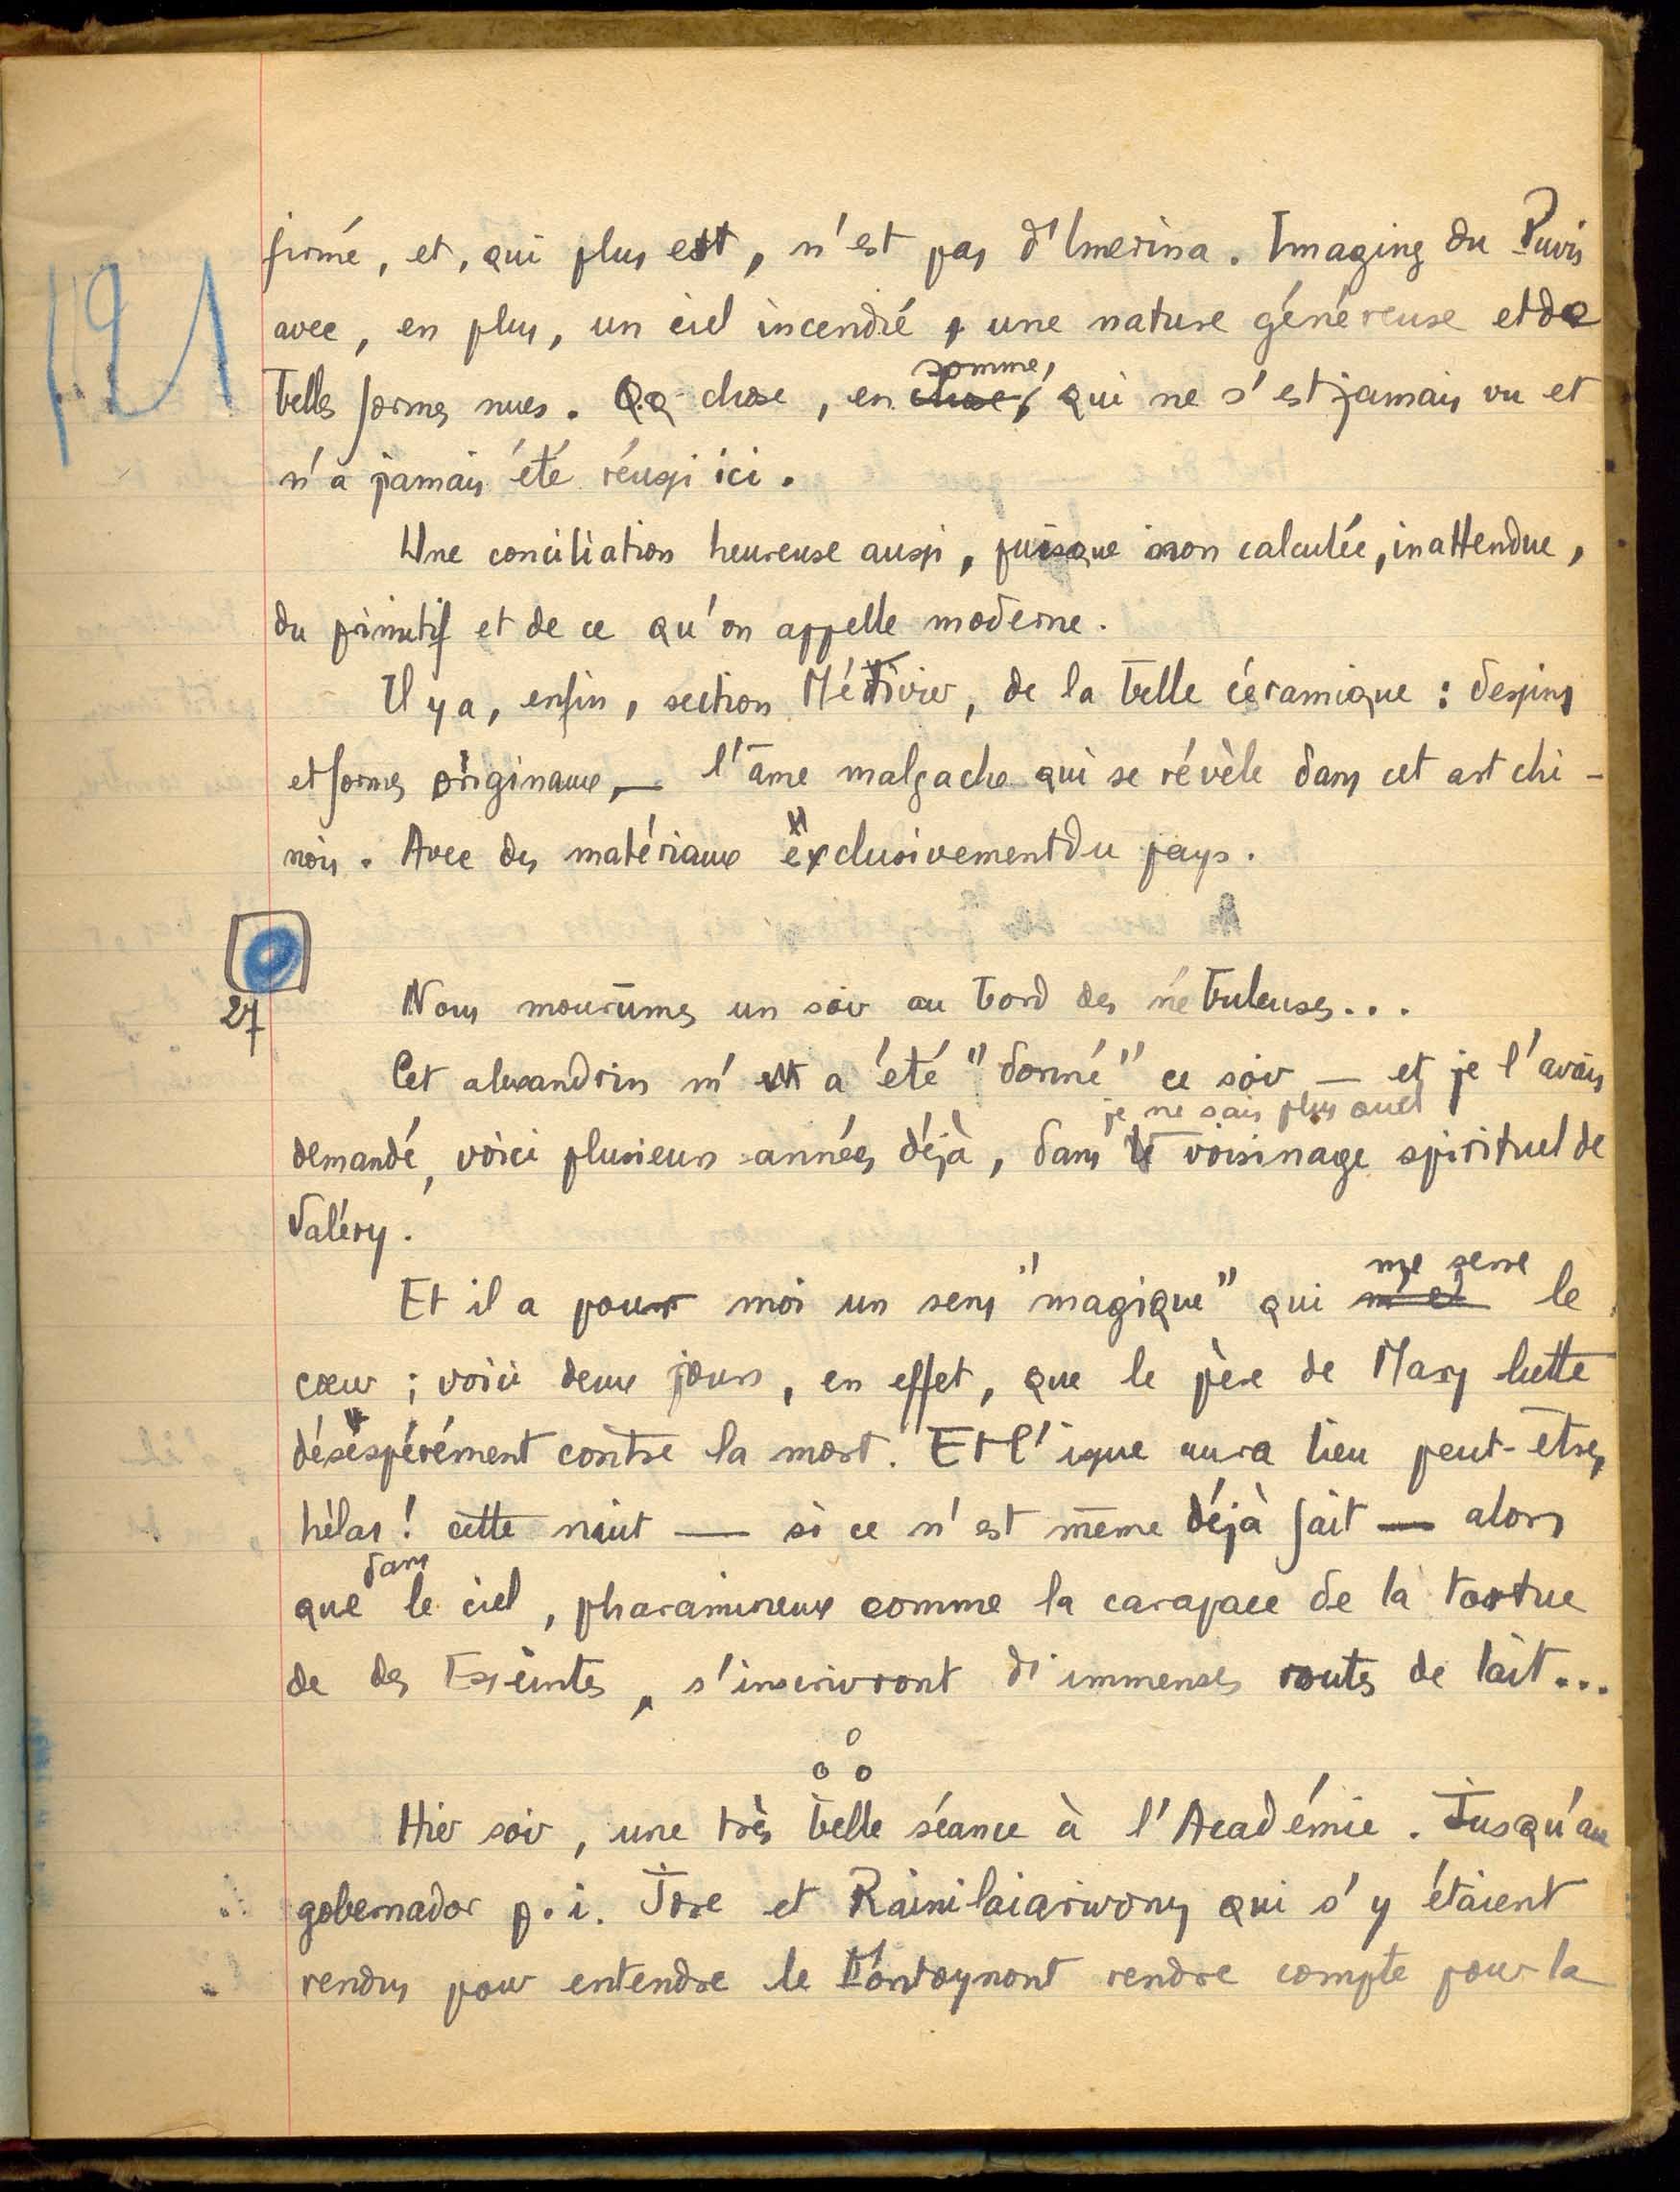 121
firmé, et, qui plus est, n'est pas d'Imerina. Imaginez du Puvis
avec, en plus, un ciel incendié, une nature généreuse et de
belles formes nues. Qq chose, en somme, qui ne s'est jamais vu et
n'a jamais été réussi ici.
Une conciliation heureuse aussi, puisque non calculée, inattendue,
du primitif et de ce qu'on appelle moderne.
Il y a, enfin, section Métivier, de la belle céramique : dessins
et formes originaux, — l'âme malgache qui se révèle dans cet art chi-
nois. Avec des matériaux exclusivement du pays.
27
Nous mourûmes un soir au bord des nébuleuses...
Cet alexandrin m'a été "donné" ce soir — et je l'avais
demandé, voici plusieurs années déjà, dans je ne sais plus quel voisinage spirituel de
Valéry.
Et il a pour moi un sens "magique" qui me serre le
cœur ; voici deux jours, en effet, que le père de Mary lutte
désespérément contre la mort. Et l'issue aura lieu peut-être,
hélas ! cette nuit — si ce n'est même déjà fait — alors
que dans le ciel, pharamineux comme la carapace de la tortue
de des Esseintes, s'inscrivront d'immenses routes de lait...
o
o o
Hier soir, une très belle séance à l'Académie. Jusqu'au
gobernador p.i. Jore et Rainilaiarivony qui s'y étaient
rendus pour entendre le Montoynont rendre compte pour la